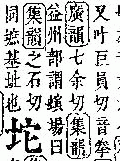 又叶巨員切音拳
廣韻七余切集韻
益州部謂螾場曰
集韻之石切
同墌基址也
坨